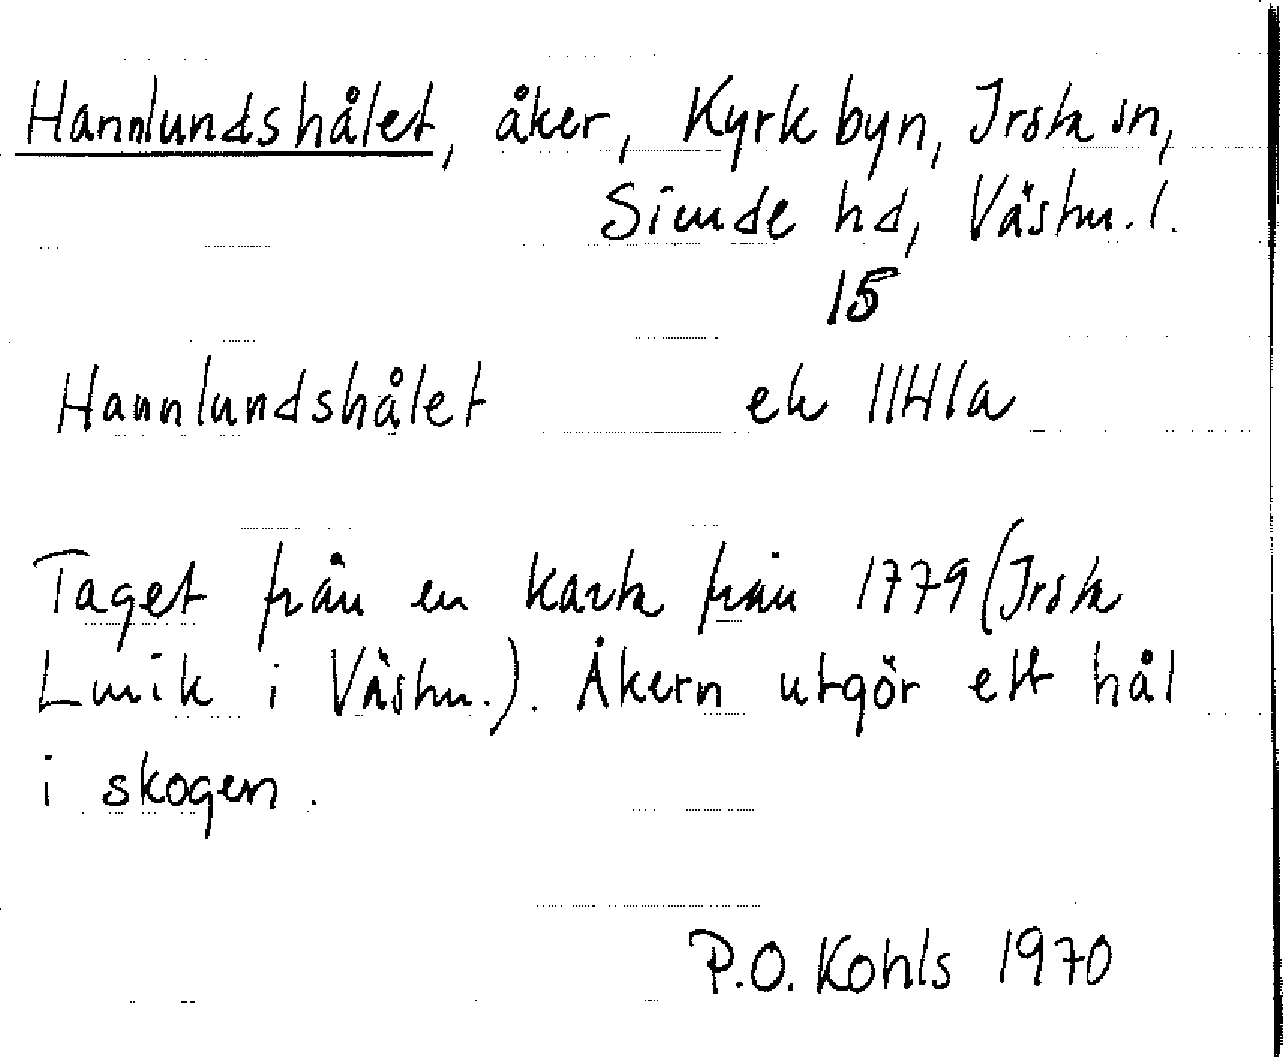 Hannlundshålet, åker, Kyrkbyn, Irsta sn,
Siende hd, Västm. l.
15
Hannlundshålet ek 11H1a
Taget från en karta från 1779 (Irsta
Lmik i Västm.). Åkern utgör ett hål
i skogen.
P.O. Kohls 1970